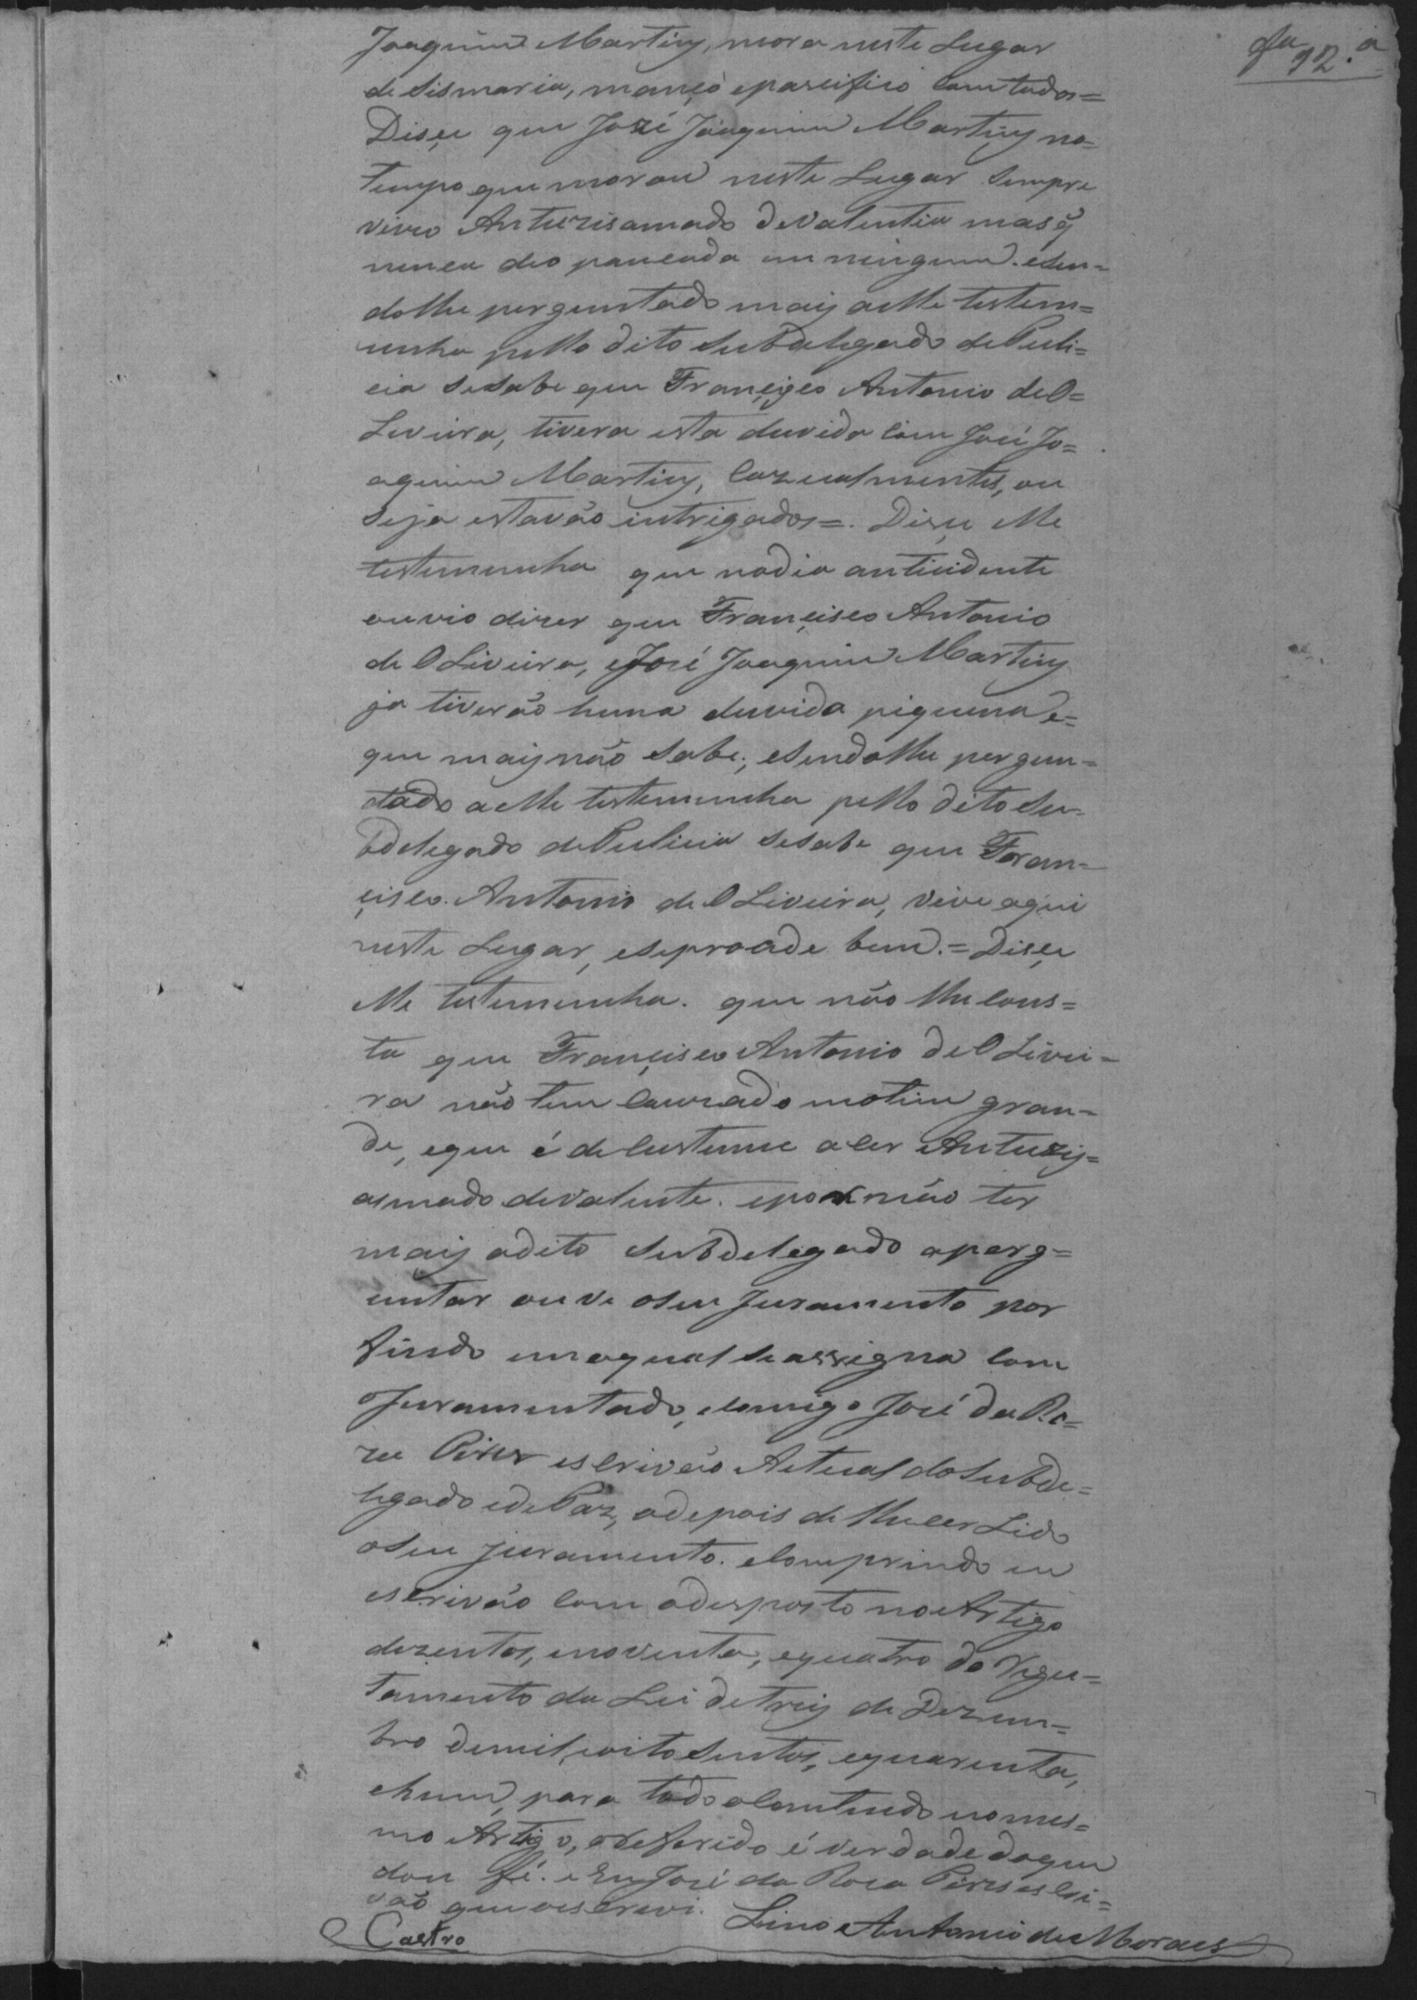 fa 12.a
Joaquim Martiz, mora neste Lugar
de sismaria, manço epaseifico Com todos=
Disçe que José Joaquim Martiz no=
tempo que morou neste Lugar sempre
viveo Anturisamado de valentia mas q̃
nunca deo pancada em ninguem. esen=
dolhe perguntado maiz aelle testem=
unha pello dito subdelegado de Puli=
cia sesabe que Françisco Antonio de O=
Liveira, tivera esta duvida Com José Jo=
aquim Martiz, Cazualmentes, ou
seja estavão intrigados=. Disçe elle
testemunha que nodia anticidente
ouvio dizer que Françisco Antonio
de OLiveira, eJosé Joaquim Martiz
ja tiverão huma duvida piquena e=
que maiz não sabe; esendolhe pergun=
tado aelle testemunha pello dito Su=
bdelegado de Pulicia sesabe que Fran=
çisco Antonio de OLiveira, vive aqui
neste Lugar, eseprocede bem.= Disçe
elle testemunha. que não lhe Cons=
ta que Françisco Antonio de OLivei=
ra não tem Cauzado motim gran=
de, eque é de Custume a ser Anturiz=
asmado devalente. epor não ter
maiz odito subdelegado aperg=
untar ouve oseu Juramento por
findo emoqual se assigna Com
oJuramentado, eComigo José da Ro=
za Pires escrivão Actual do Subde=
legado edePaz, adepois de lhe ser Lido
oseu juramento. eComprindo eu
escrivão Com odesposto no Artigo
dozentos, enoventa, equatro do Regu=
lamento da Lei deTreiz de Dezem=
bro demil, oitosentos, equarenta,
ehum, para todo oContiudo nomes=
mo Artigo, oReferido é verdade doque
dou fé. e Eu José da Roza Pires escri=
vão que oescrevi.
Castro Lino Antonio de Moraes